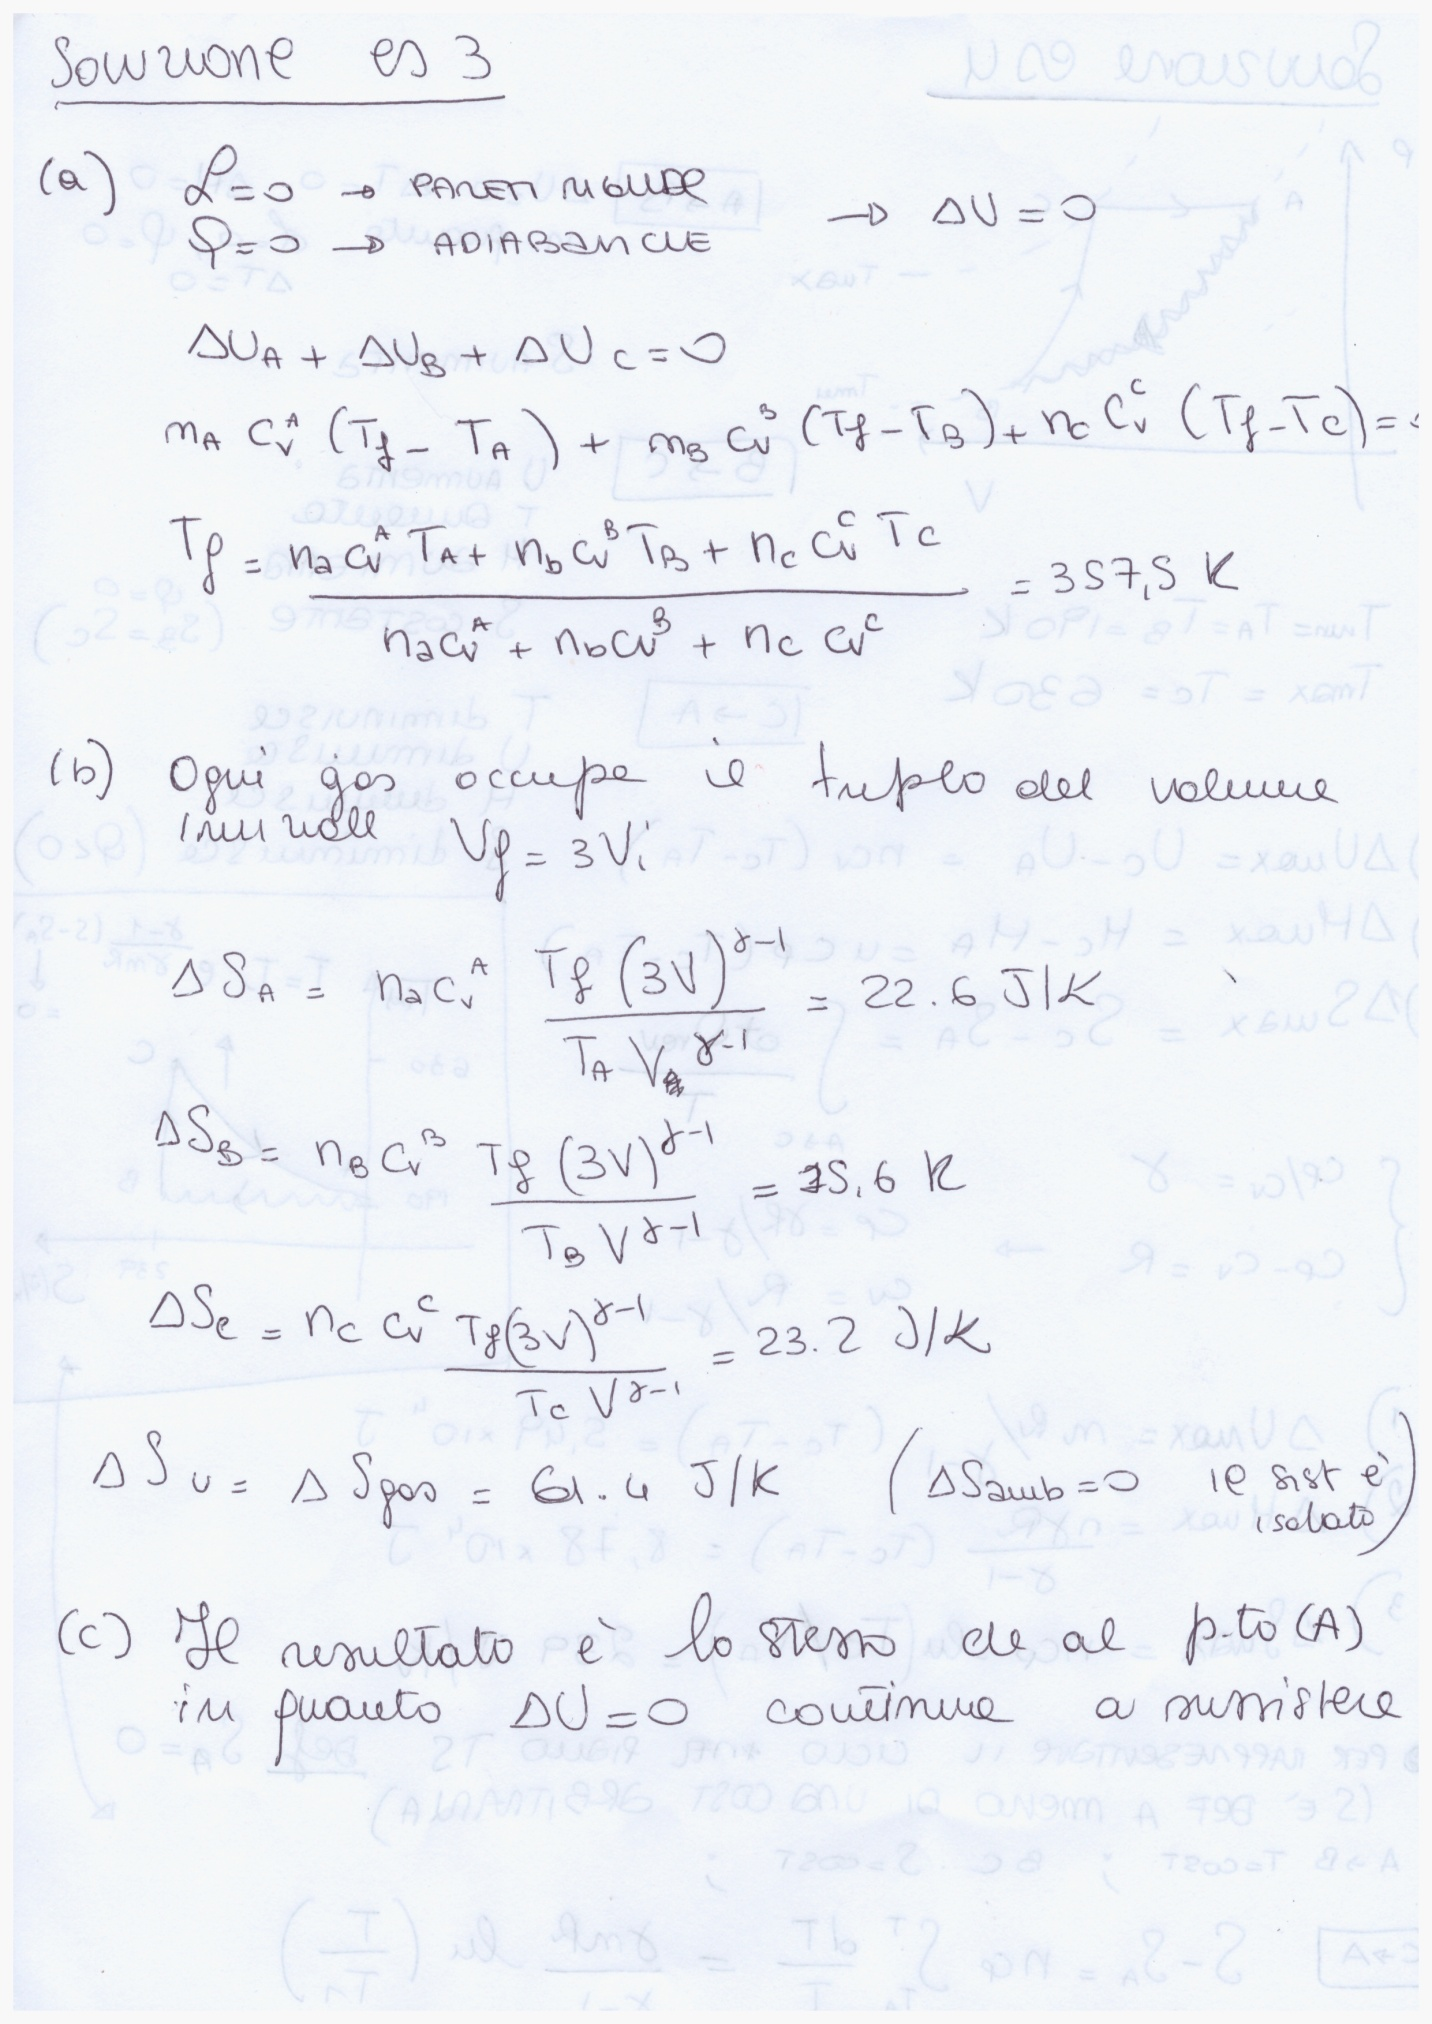 Soluzione es 3
(a) L=0 → PARETI RIGIDE
Q=0 → ADIABATICHE → ΔU = 0
ΔU_A + ΔU_B + ΔU_C = 0
n_A C_v^A (T_f - T_A) + n_B C_v^B (T_f - T_B) + n_C C_v^C (T_f - T_C) =
T_f = n_a c_v^A T_A + n_b c_v^B T_B + n_c c_v^C T_C = 357,5 K
n_a c_v^A + n_b c_v^B + n_c c_v^C
(b) Ogni gas occupa il triplo del volume
iniziale V_f = 3V_i
ΔS_A = n_a c_v^A T_f (3V)^γ-1 = 22.6 J/K
T_A V_A^γ-1
ΔS_B = n_B c_v^B T_f (3V)^γ-1 = 15,6 K
T_B V^γ-1
ΔS_C = n_C c_v^C T_f (3V)^γ-1 = 23.2 J/K
T_C V^γ-1
ΔS_U = ΔS_gas = 61.4 J/K (ΔS_amb = 0 il sist è
isolato)
(c) Il risultato è lo stesso de al p.to (A)
in quanto ΔU = 0 continua a sussistere